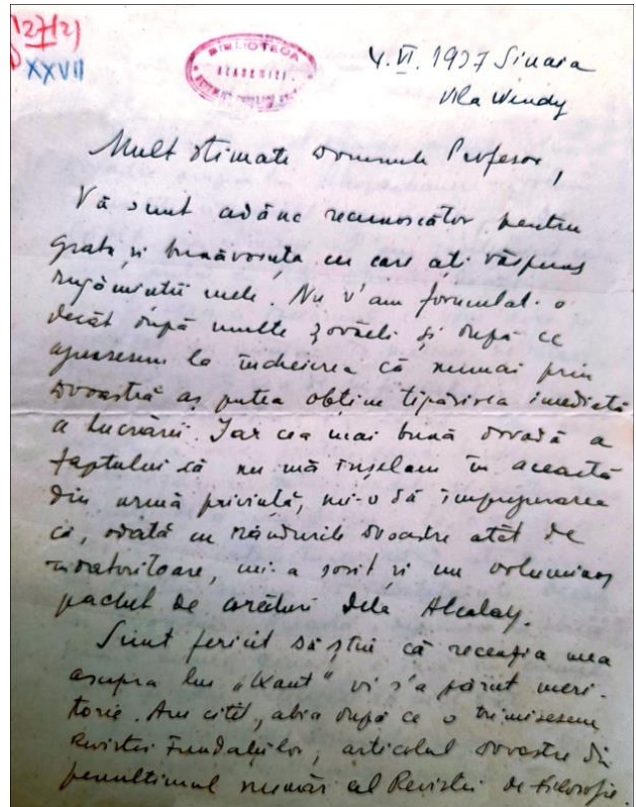 27(2)
XXVII
BIBLIOTECA
ACADEMIEI
4.VI.1937 Sinaia
Vila Windy
Mult Stimate Domnule Profesor,
Vă sunt adânc recunoscător pentru
grata și bunăvoința cu care ați răspuns
rugăminții mele. Nu v'am formulat-o
decât după multe zovăeli și după ce
ajunsesem la încheierea că numai prin
Dvoastră aș putea obține tipărirea imediată
a lucrării. Iar cea mai bună dovadă a
faptului că nu mă înșelam în această
din urmă privință, mi-o dă împrejurarea
că, odată cu rândurile Dvoastre atât de
îndatoritoare, mi-a sosit și un voluminos
pachet de corecturi dela Alcalay.
Sunt fericit să știu că recenzia mea
asupra lui „Kant" vi s'a părut meri-
torie. Am citit, abia după ce o trimisesem
Revistei Fundațiilor, articolul Dvoastre din
penultimul număr al Revistei de Filosofie